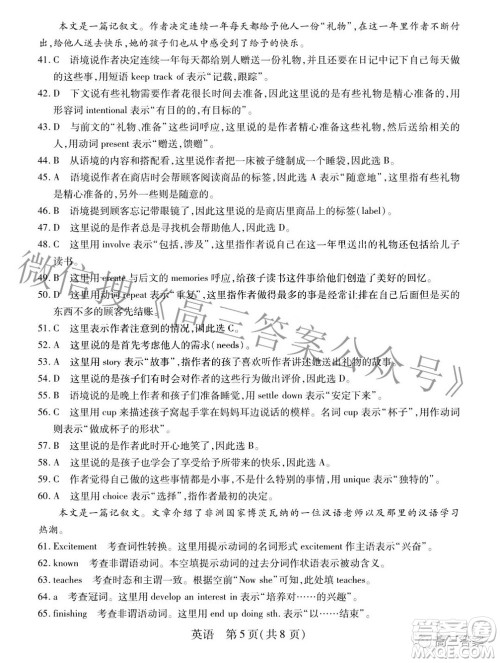 本文是一篇记叙文。作者决定连续一年每天都给予他人一份“礼物”，在这一年里作者不断付
出，给他人送去快乐，她的孩子们也从中感受到了给予的快乐。
41. C 语境说作者决定连续一年每天都给别人赠送一份礼物，因此这里说的是记录自己每天做
的这些事时，用短语 keep track of 表示“记载，跟踪”。
42. D 下文说有些礼物需要作者花很长时间去准备，因此这里说的是有些礼物是精心准备的，用
形容词 intentional 表示“有目的的，有目的的”。
43. D 与前文的“礼物、准备”这些词呼应，因此这里说的是作者精心准备的，因此选 D。
44. D 用动词 present 表示“赠送，馈赠”。
44. B 从语境的内容看，这里说的是作者把一床被子缝制成一个大抱枕，因此选 B。
45. A 语境说作者在商店时会帮助顾客阅读商品的标签，因此选 A 表示“随意地”，这里说有些是
精心准备的，另外一些则是随意的。
46. B 语境提到顾客忘记带眼镜了，因此这里说的是商店里商品上的标签(label)。
47. B 这里说的是作者总是寻找机会帮助他人，因此选 B。
48. C 这里用 involve 表示“包括，涉及”，因此这里表示在这一年里送出的礼物还包括给儿子
读书。
49. B 这里用 create 与后文的 memories 呼应，给孩子读书这件事情给作者创造了美好的回忆。
50. D 这里用动词 repeat 表示“重复”，因此这里说的是作者又一次这么做，让只有一件要买的
东西不多的顾客先结账。
51. C 这里表示作者注意到的情况，因此选 C。
52. C 这里说的是首先考虑他人的需求(needs)。
53. A 这里用 story 表示“故事”，指作者的孩子喜欢听作者讲述她送出的礼物的故事。
54. A 这里说的是孩子们有时候会参与其中，因此选 A。
55. D 语境说的是晚上作者和孩子上床的时候，用 settle down 表示“安顿下来”。
56. D 这里用 cup 来描述孩子窝着小手在妈妈耳边说话的样子。名词 cup 表示“杯子”，用作动词
则表示“做成杯子的形状”。
57. B 这里说的是作者有时开车外出，因此选 B。
58. A 这里说的是孩子也学会了给予，因此选 A。
59. C 这里说的是作者自己做的这些事情都是小事，不是什么特别的事情，用 unique 表示“独特的”。
60. A 这里用 choice 表示“选择”，指作者最初的决定。
本文是一篇记叙文。文章介绍了非洲国家博茨瓦纳的一位汉语老师以及那里的汉语学习
热潮。
61. Excitement 考查词性转换。这里用提示动词的名词形式 excitement 作主语表示“兴奋”。
62. known 考查非谓语动词。本空填提示动词的过去分词作状语表示被动。
63. teaches 考查时态和主谓一致。由前文的“Now she”可知，这里用一般现在时。
64. a 考查冠词。这里用 develop an interest in 表示“对……产生兴趣”。
65. finishing 考查非谓语动词。这里用 end up doing sth. 表示“以……结束”。
英语 第 5 页(共 8 页)
微信搜《高三答案公众号》
高三答案